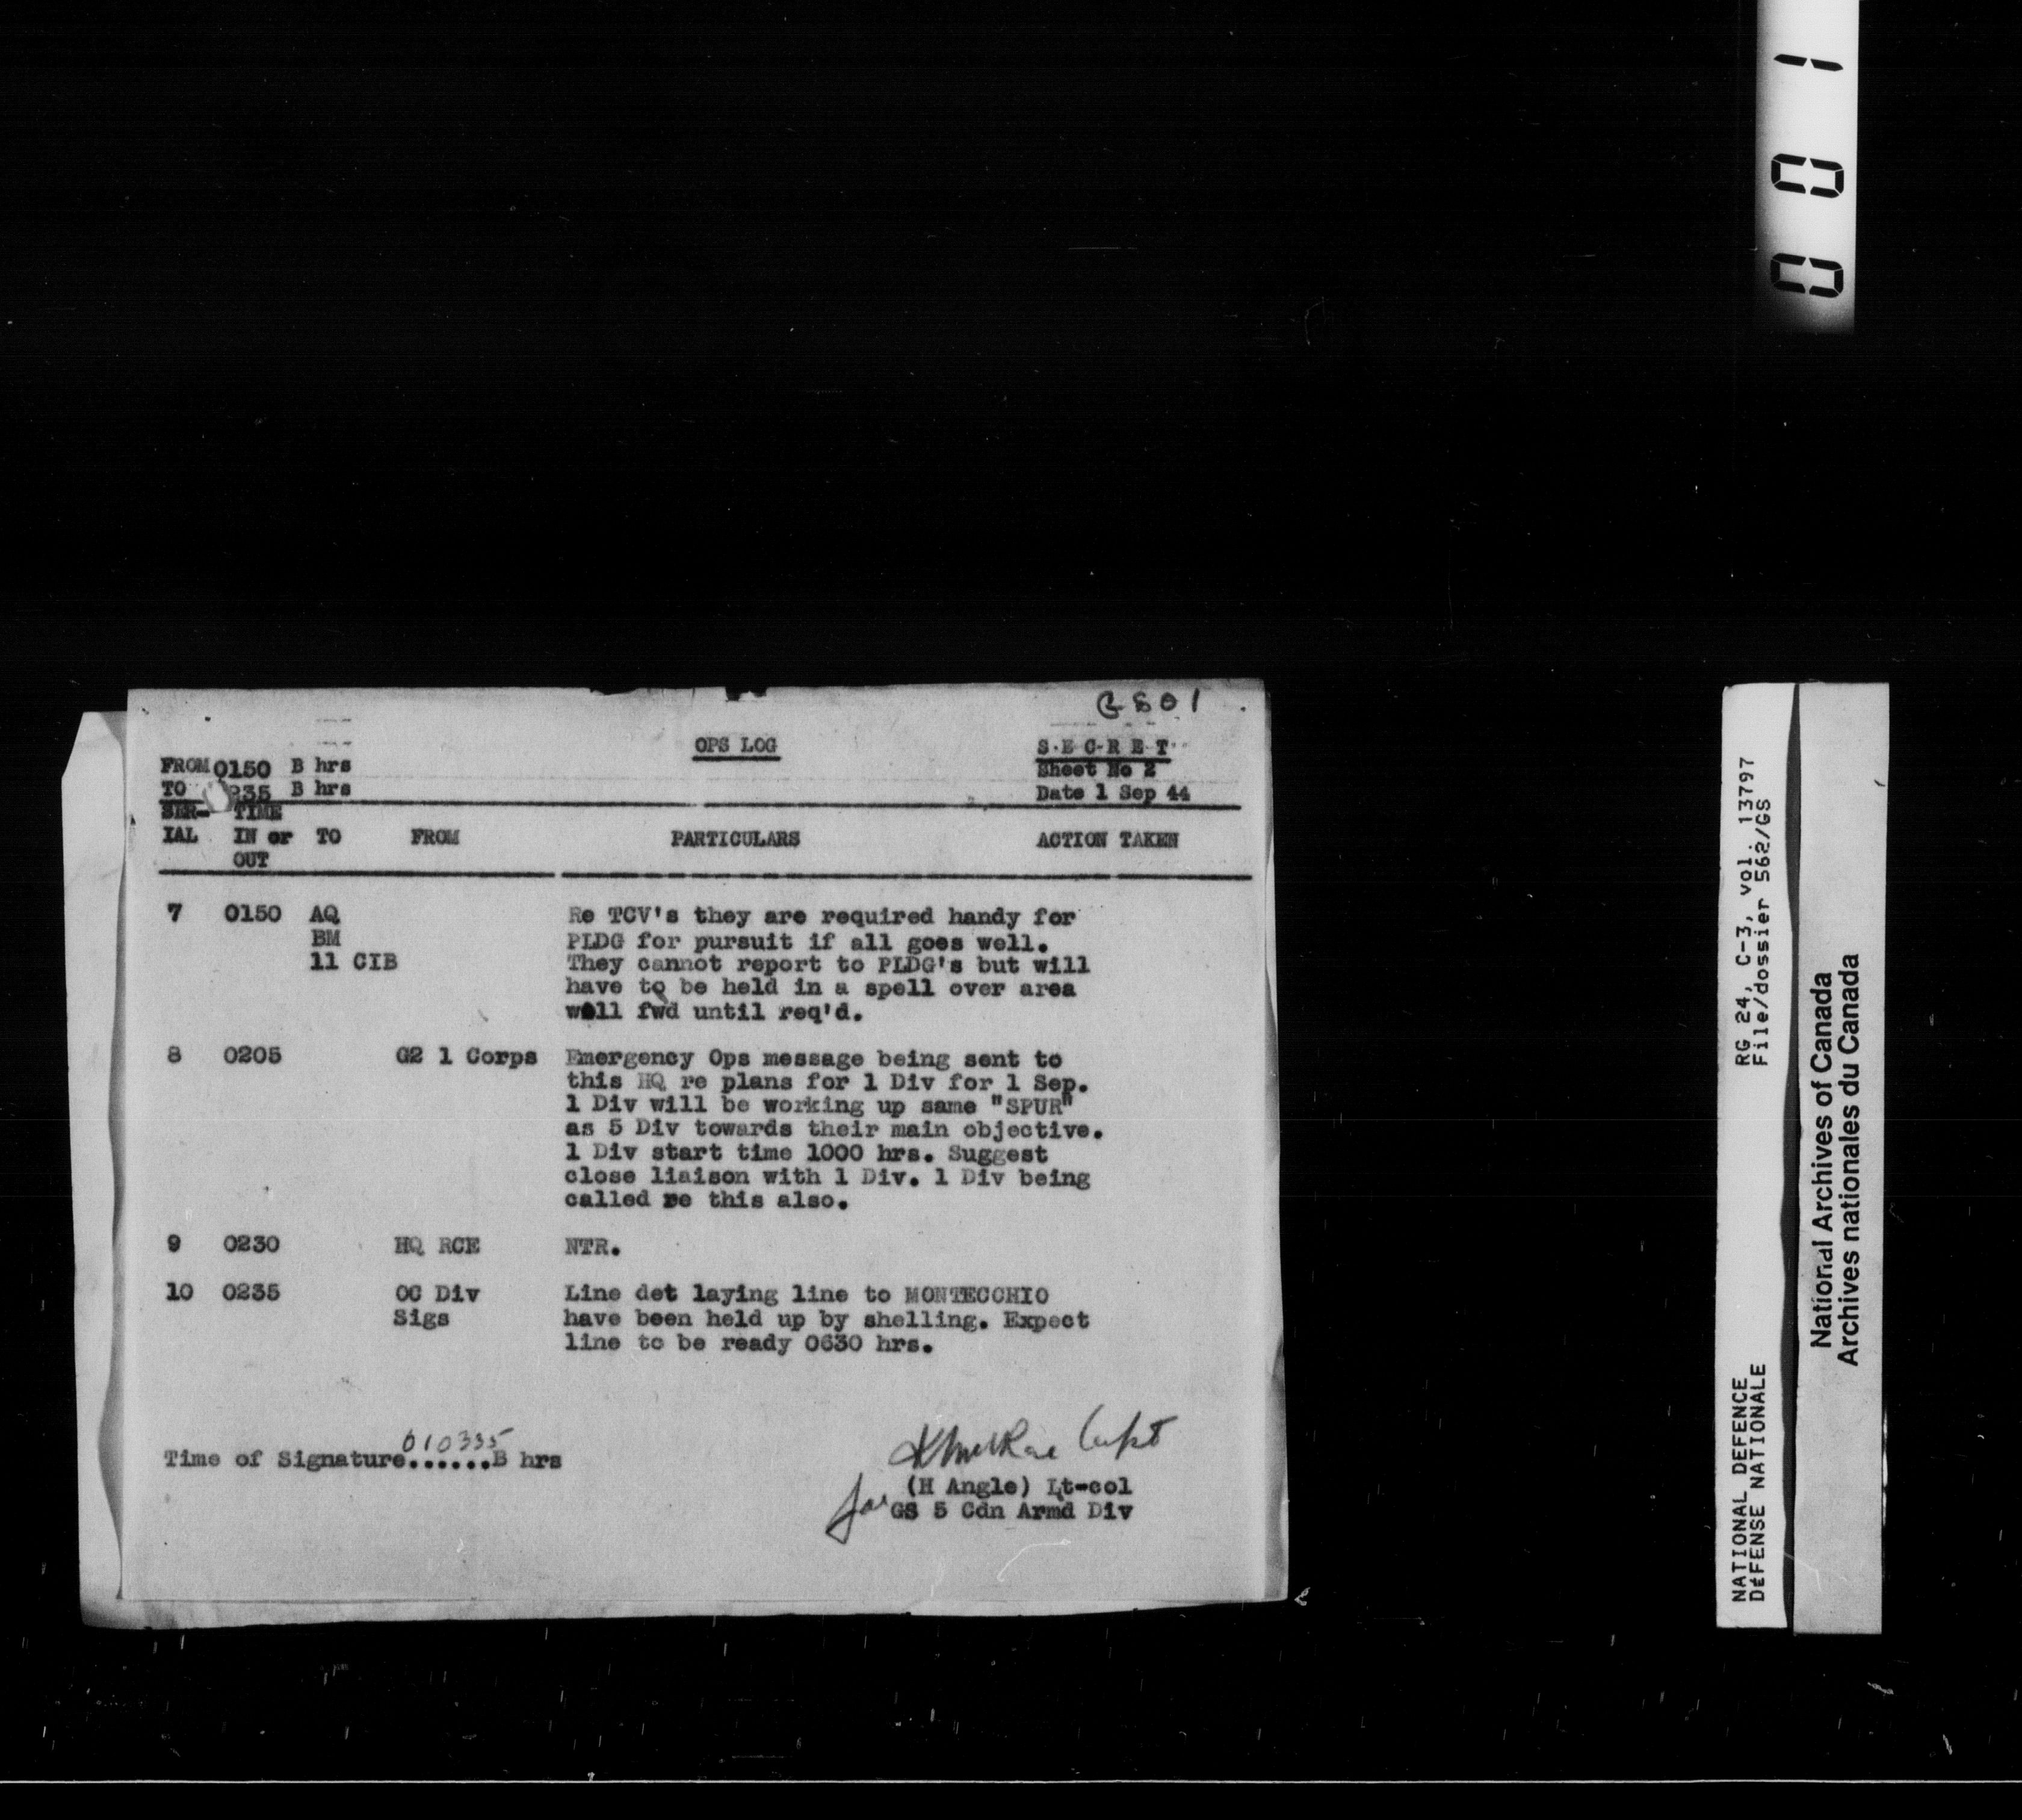 001
GSO1
OPS LOG
S.E C-R E T
Sheet No 2
Date 1 Sep 44
FROM 0150 B hrs
TO 0235 B hrs
SER-IAL TIME IN or OUT TO FROM PARTICULARS ACTION TAKEN
7 0150 AQ Re TCV's they are required handy for
BM PLDG for pursuit if all goes well.
11 CIB They cannot report to PLDG's but will
have to be held in a spell over area
well fwd until req'd.
8 0205 G2 1 Corps Emergency Ops message being sent to
this HQ re plans for 1 Div for 1 Sep.
1 Div will be working up same "SPUR"
as 5 Div towards their main objective.
1 Div start time 1000 hrs. Suggest
close liaison with 1 Div. 1 Div being
called re this also.
9 0230 HQ RCE NTR.
10 0235 OC Div Line det laying line to MONTECCHIO
Sigs have been held up by shelling. Expect
line to be ready 0630 hrs.
Time of Signature 010335 B hrs
Capt
(H Angle) Lt-col
for GS 5 Cdn Armd Div
NATIONAL DEFENCE RG 24, C-3, vol. 13797
DéFENSE NATIONALE File/dossier 562/GS
National Archives of Canada
Archives nationales du Canada